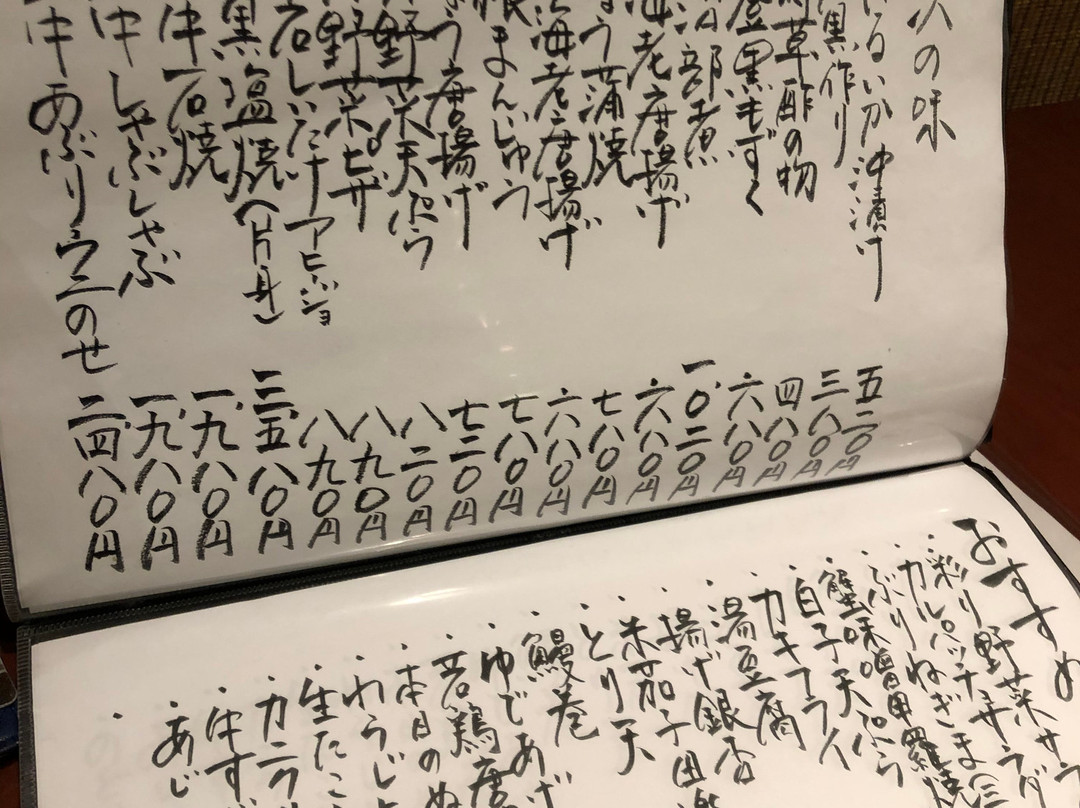 の味
るいか沖漬け 五二〇円
黒作り 三八〇円
草酢の物 四八〇円
黒もずく 六八〇円
治部煮 一、〇二〇円
海老唐揚げ 六八〇円
う蒲焼 七八〇円
海老唐揚げ 六八〇円
まんじゅう 七八〇円
う唐揚げ 七二〇円
野菜天ぷら 八二〇円
野菜ピザ 八九〇円
石しいたけアヒージョ 八九〇円
黒塩焼(片身) 三、五八〇円
牛石焼 一、九八〇円
牛しゃぶしゃぶ 一、九八〇円
牛あぶりウニのせ 二、四八〇円
おすすめ
・彩り野菜サラ
・カルパッチョサラダ
・ぶりねぎま
・蟹味噌甲羅焼
・白子天ぷら
・カキフライ
・湯豆腐
・揚げ銀杏
・米茄子田楽
・とり天
・鰻巻
・ゆであげ
・若鶏唐
・本日のぬ
・わらじ
・生たこ
・カニ
・牛す
・あじ